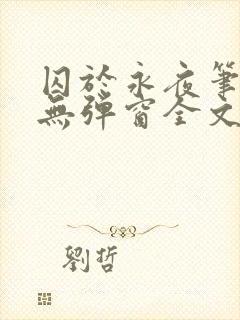 囚於永夜筆
無彈窗全文
劉哲